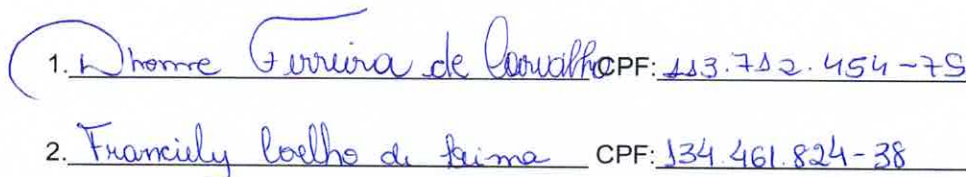 1. Dhonne Ferreira de Carvalho CPF: 113.712.454-75
2. Franciely Coelho de Lima CPF: 134.461.824-38